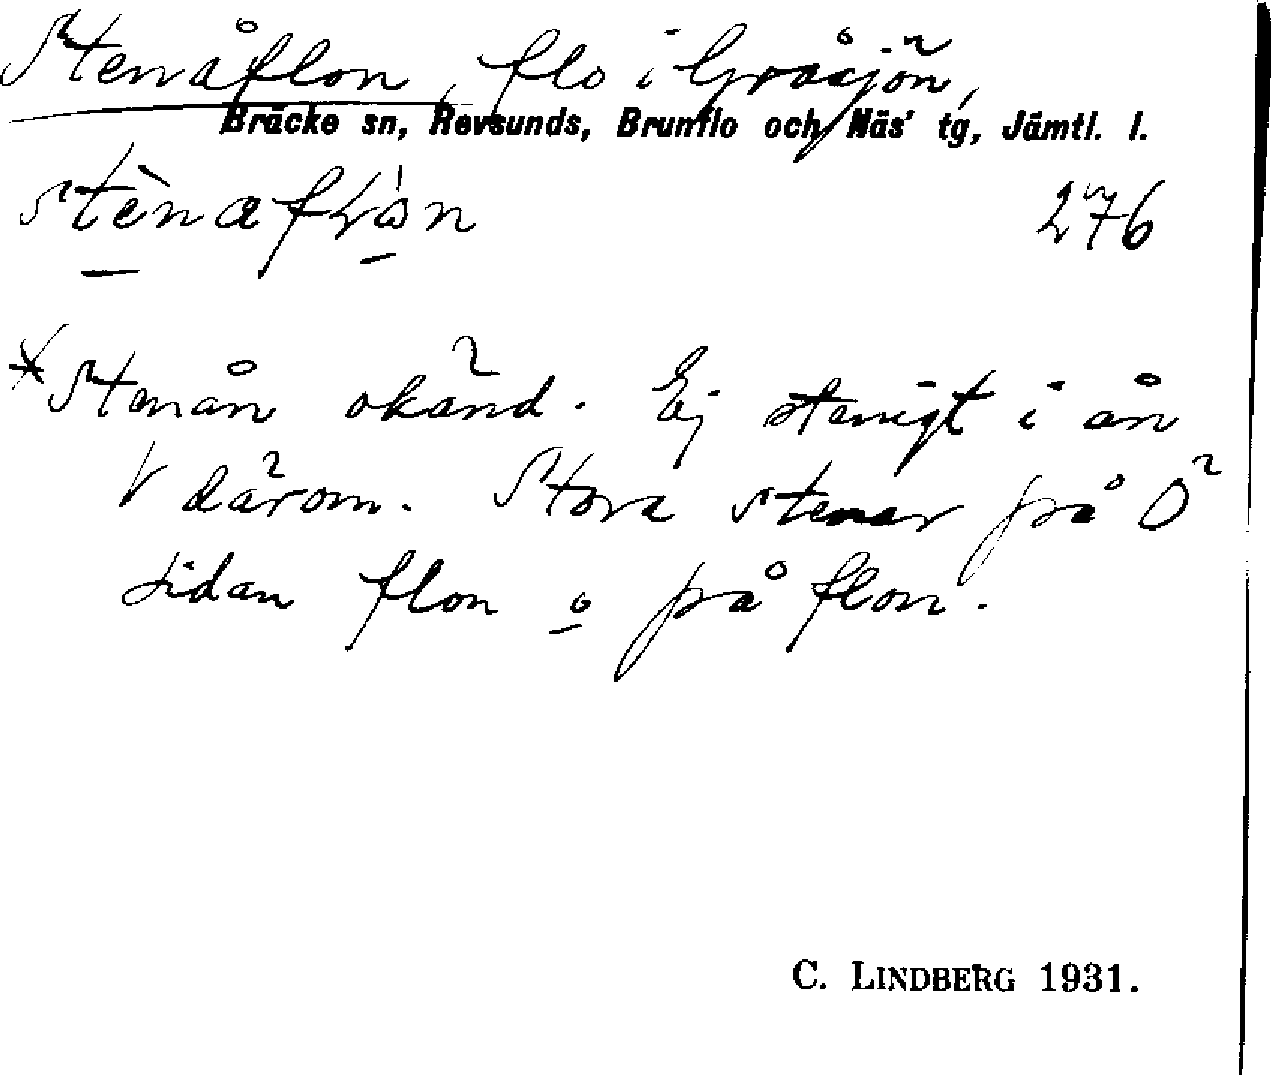 Stenåflon, flo i Gråsjön,
Bräcke sn, Revsunds, Brunflo och Näs' tg, Jämtl. l.
276
*Stenån okänd. Ej stenigt i ån
V därom. Stora stenar på Ö
sidan flon o på flon.
C. LINDBERG 1931.